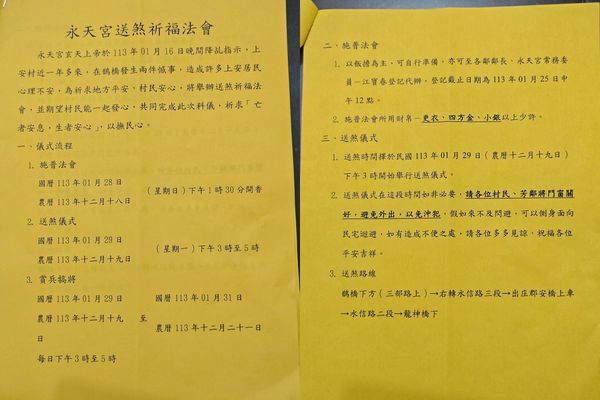 永天宮送煞祈福法會
永天宮玄天上帝於 113 年 01 月 16 日晚間降乩指示，上
安村近一年多來，在鵲橋發生兩件憾事，造成許多上安居民
心理不安，為祈求地方平安、村民安心，將舉辦送煞祈福法
會，並期望村民能一起發心，共同完成此次科儀，祈求「亡
者安息，生者安心」，以撫民心。
一、儀式流程
1. 施普法會
國曆 113 年 01 月 28 日
（星期日）下午 1 時 30 分開香
農曆 113 年十二月十八日
2. 送煞儀式
國曆 113 年 01 月 29 日
（星期一）下午 3 時至 5 時
農曆 113 年十二月十九日
3. 賞兵犒將
國曆 113 年 01 月 29 日
國曆 113 年 01 月 31 日
農曆 113 年十二月十九
至
農曆 113 年十二月二十一日
日
每日下午 3 時至 5 時
二、施普法會
1. 以飯擔為主，可自行準備，亦可至各鄰鄰長、永天宮常務委
員－江寶春登記代辦，登記截止日期為 113 年 01 月 25 日中
午 12 點。
2. 施普法會所用財帛－更衣、四方金、小銀以上少許。
三、送煞儀式
1. 送煞時間擇於民國 113 年 01 月 29 日（農曆十二月十九日）
下午 3 時開始舉行送煞儀式。
2. 送煞儀式在這段時間如非必要，請各位村民、芳鄰將門窗關
好，避免外出，以免沖犯，假如來不及閃避，可以側身面向
民宅迴避，如有造成不便之處，請各位多多見諒，祝福各位
平安吉祥。
3. 送煞路線
鵲橋下方（三部路上）→右轉水信路三段→出庄郡安橋上車
→水信路二段→龍神橋下